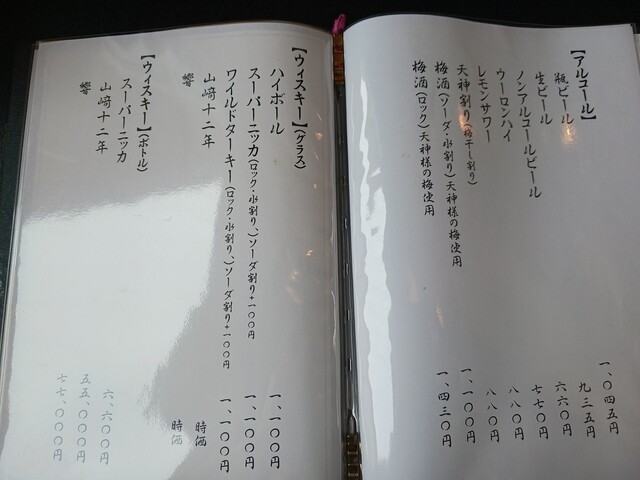 【アルコール】
瓶ビール 一、〇四五円
生ビール 九三五円
ノンアルコールビール 六六〇円
ウーロンハイ 七七〇円
レモンサワー 八八〇円
天神割り(梅干し割り) 八八〇円
梅酒(ソーダ・水割り)天神様の梅使用 一、一〇〇円
梅酒(ロック)天神様の梅使用 一、四三〇円
【ウィスキー】(グラス)
ハイボール 一、一〇〇円
スーパーニッカ(ロック・水割り、)ソーダ割り+一〇〇円 一、一〇〇円
ワイルドターキー(ロック・水割り、)ソーダ割り+一〇〇円 一、一〇〇円
山﨑十二年 時価
響 時価
【ウィスキー】(ボトル)
スーパーニッカ 六、六〇〇円
山﨑十二年 五五、〇〇〇円
響 七七、〇〇〇円